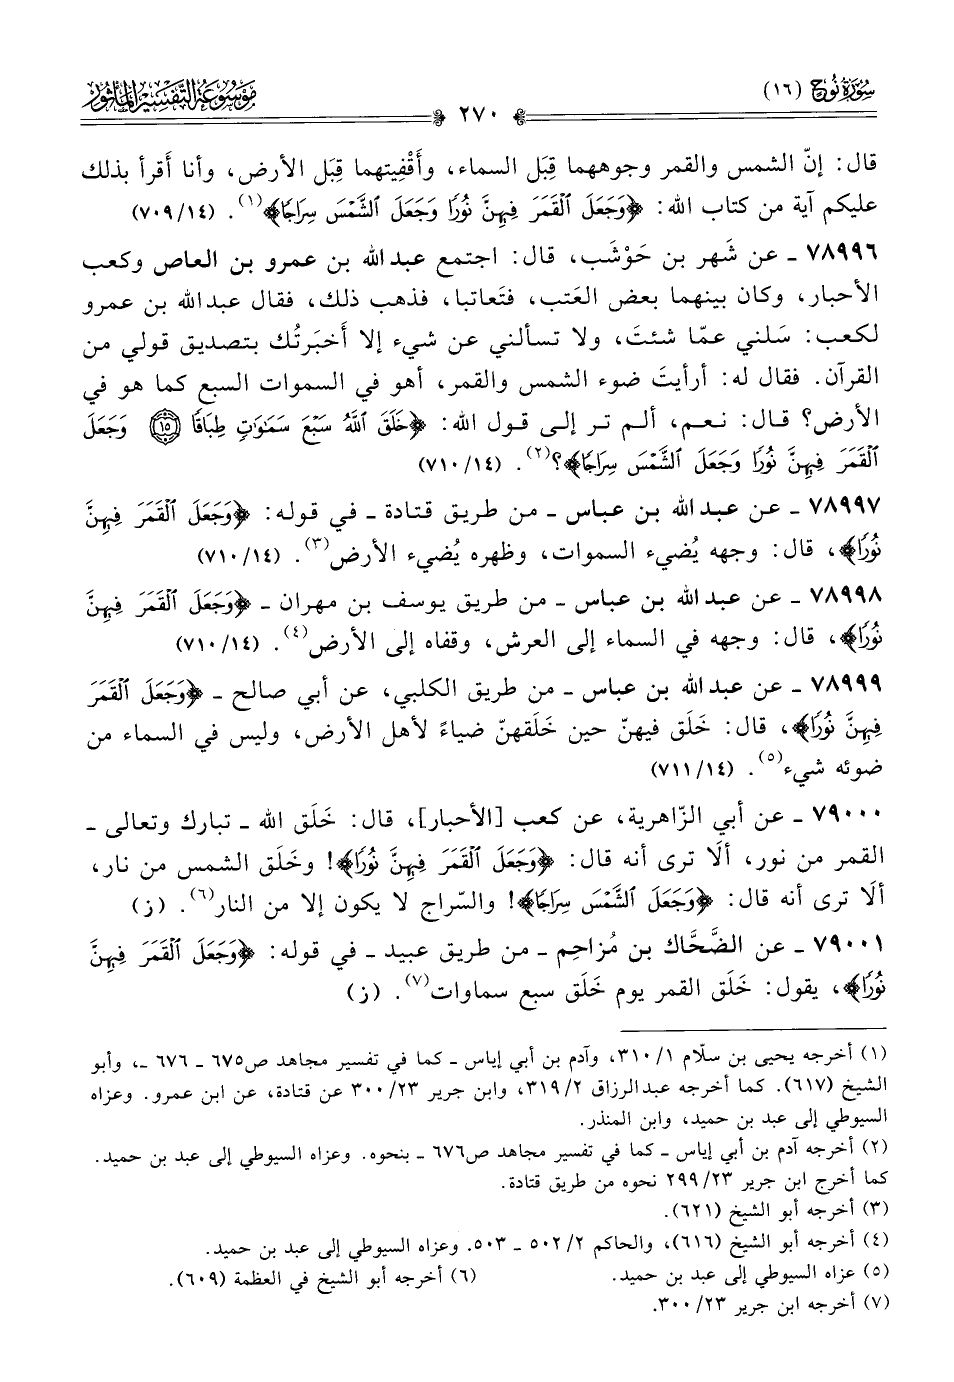 سُورَةُ نُوحٍ (١٦)
٢٧٠
مَوْسُوعَةُ التَّفْسِيرِ المَأْثُور
قال: إنّ الشمس والقمر وجوههما قِبَل السماء، وأَقْفِيتهما قِبَل الأرض، وأنا أَقرأ بذلك
عليكم آية من كتاب الله: ﴿وَجَعَلَ الْقَمَرَ فِيهِنَّ نُورًا وَجَعَلَ الشَّمْسَ سِرَاجًا﴾(١). (١٤/٧٠٩)
٧٨٩٩٦ ـ عن شَهر بن حَوْشَب، قال: اجتمع عبد الله بن عمرو بن العاص وكعب
الأحبار، وكان بينهما بعض العَتب، فتَعاتبا، فذهب ذلك، فقال عبد الله بن عمرو
لكعب: سَلني عمّا شئتَ، ولا تسألني عن شيء إلا أَخبَرتُك بتصديق قولي من
القرآن. فقال له: أرأيتَ ضوء الشمس والقمر، أهو في السموات السبع كما هو في
الأرض؟ قال: نعم، ألم تر إلى قول الله: ﴿خَلَقَ اللَّهُ سَبْعَ سَمَوَاتٍ طِبَاقًا ۝١٥ وَجَعَلَ
الْقَمَرَ فِيهِنَّ نُورًا وَجَعَلَ الشَّمْسَ سِرَاجًا﴾؟(٢). (١٤/٧١٠)
٧٨٩٩٧ ـ عن عبد الله بن عباس ـ من طريق قتادة ـ في قوله: ﴿وَجَعَلَ الْقَمَرَ فِيهِنَّ
نُورًا﴾، قال: وجهه يُضيء السموات، وظهره يُضيء الأرض(٣). (١٤/٧١٠)
٧٨٩٩٨ ـ عن عبد الله بن عباس ـ من طريق يوسف بن مهران ـ ﴿وَجَعَلَ الْقَمَرَ فِيهِنَّ
نُورًا﴾، قال: وجهه في السماء إلى العرش، وقفاه إلى الأرض(٤). (١٤/٧١٠)
٧٨٩٩٩ ـ عن عبد الله بن عباس ـ من طريق الكلبي، عن أبي صالح ـ ﴿وَجَعَلَ الْقَمَرَ
فِيهِنَّ نُورًا﴾، قال: خَلَق فيهنّ حين خَلَقهنّ ضياءً لأهل الأرض، وليس في السماء من
ضوئه شيء(٥). (١٤/٧١١)
٧٩٠٠٠ ـ عن أبي الزّاهرية، عن كعب [الأحبار]، قال: خَلَق الله ـ تبارك وتعالى ـ
القمر من نور، ألَا ترى أنه قال: ﴿وَجَعَلَ الْقَمَرَ فِيهِنَّ نُورًا﴾! وخَلَق الشمس من نار،
ألَا ترى أنه قال: ﴿وَجَعَلَ الشَّمْسَ سِرَاجًا﴾! والسّراج لا يكون إلا من النار(٦). (ز)
٧٩٠٠١ ـ عن الضَّحَّاك بن مُزاحِم ـ من طريق عبيد ـ في قوله: ﴿وَجَعَلَ الْقَمَرَ فِيهِنَّ
نُورًا﴾، يقول: خَلَق القمر يوم خَلَق سبع سماوات(٧). (ز)
(١) أخرجه يحيى بن سلّام ٣١٠/١، وآدم بن أبي إياس ـ كما في تفسير مجاهد ص٦٧٥ ـ ٦٧٦ ـ، وأبو
الشيخ (٦١٧). كما أخرجه عبد الرزاق ٣١٩/٢، وابن جرير ٣٠٠/٢٣ عن قتادة، عن ابن عمرو. وعزاه
السيوطي إلى عبد بن حميد، وابن المنذر.
(٢) أخرجه آدم بن أبي إياس ـ كما في تفسير مجاهد ص٦٧٦ ـ بنحوه. وعزاه السيوطي إلى عبد بن حميد.
كما أخرج ابن جرير ٢٩٩/٢٣ نحوه من طريق قتادة.
(٣) أخرجه أبو الشيخ (٦٢١).
(٤) أخرجه أبو الشيخ (٦١٦)، والحاكم ٥٠٢/٢ ـ ٥٠٣. وعزاه السيوطي إلى عبد بن حميد.
(٥) عزاه السيوطي إلى عبد بن حميد. (٦) أخرجه أبو الشيخ في العظمة (٦٠٩).
(٧) أخرجه ابن جرير ٣٠٠/٢٣.